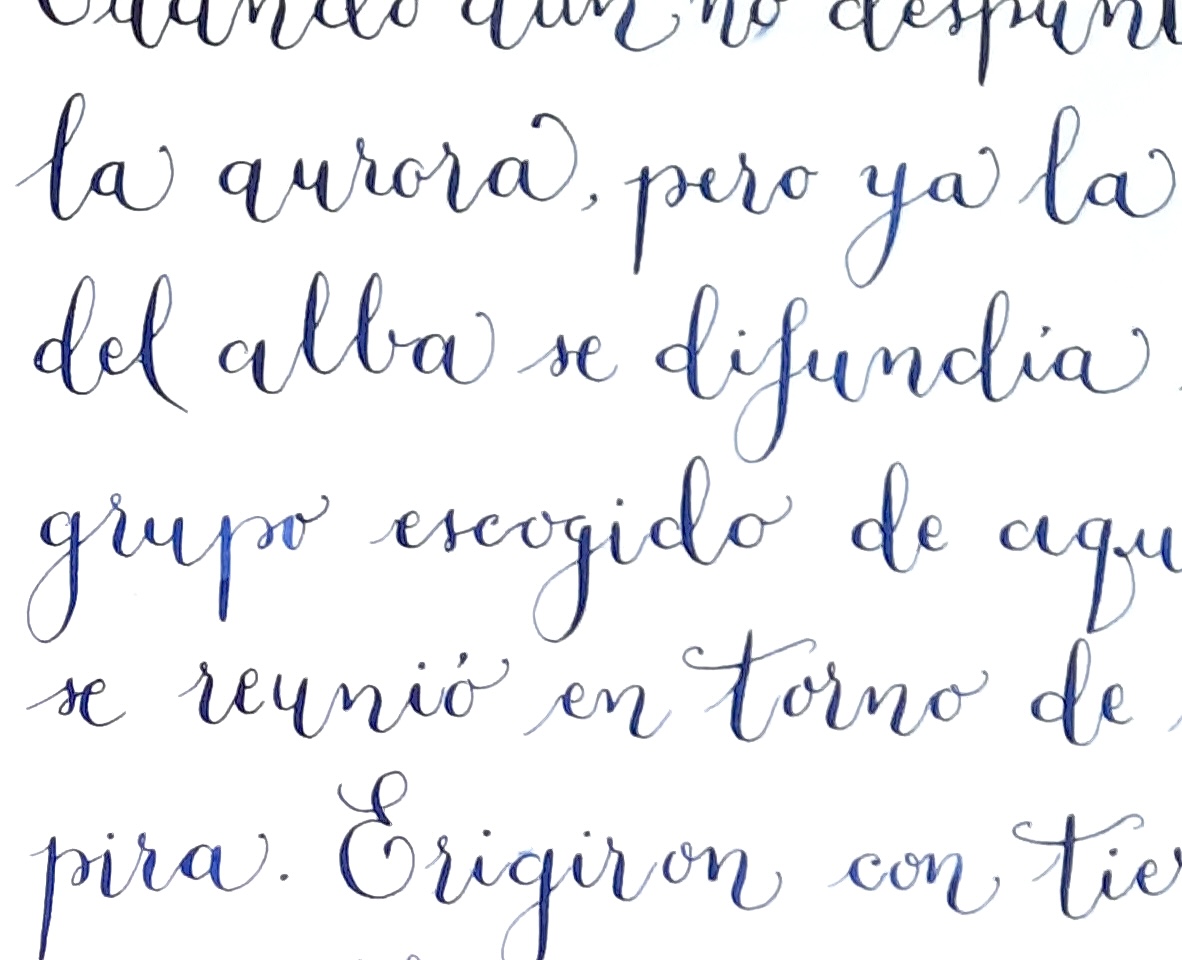 Cuando aún no despunt
la aurora, pero ya la
del alba se difundía
grupo escogido de aqu
se reunió en torno de
pira. Erigiron con tie